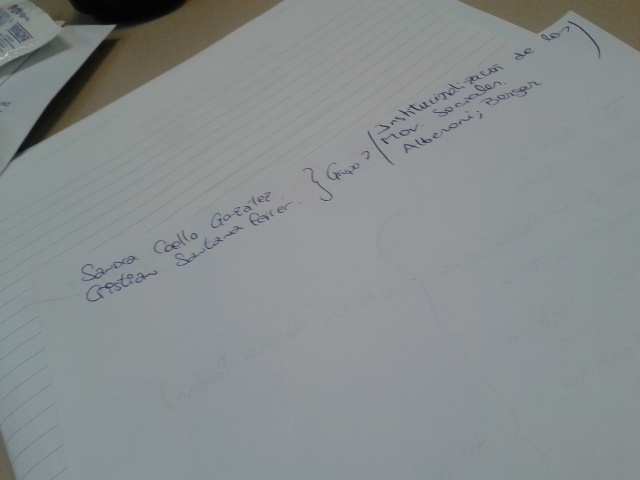 Sandra Coello González.
Cristian Santana Ferrer. } Grupo 2
(Institucionalización de los
Mov. Sociales.
Alberoni; Berger)